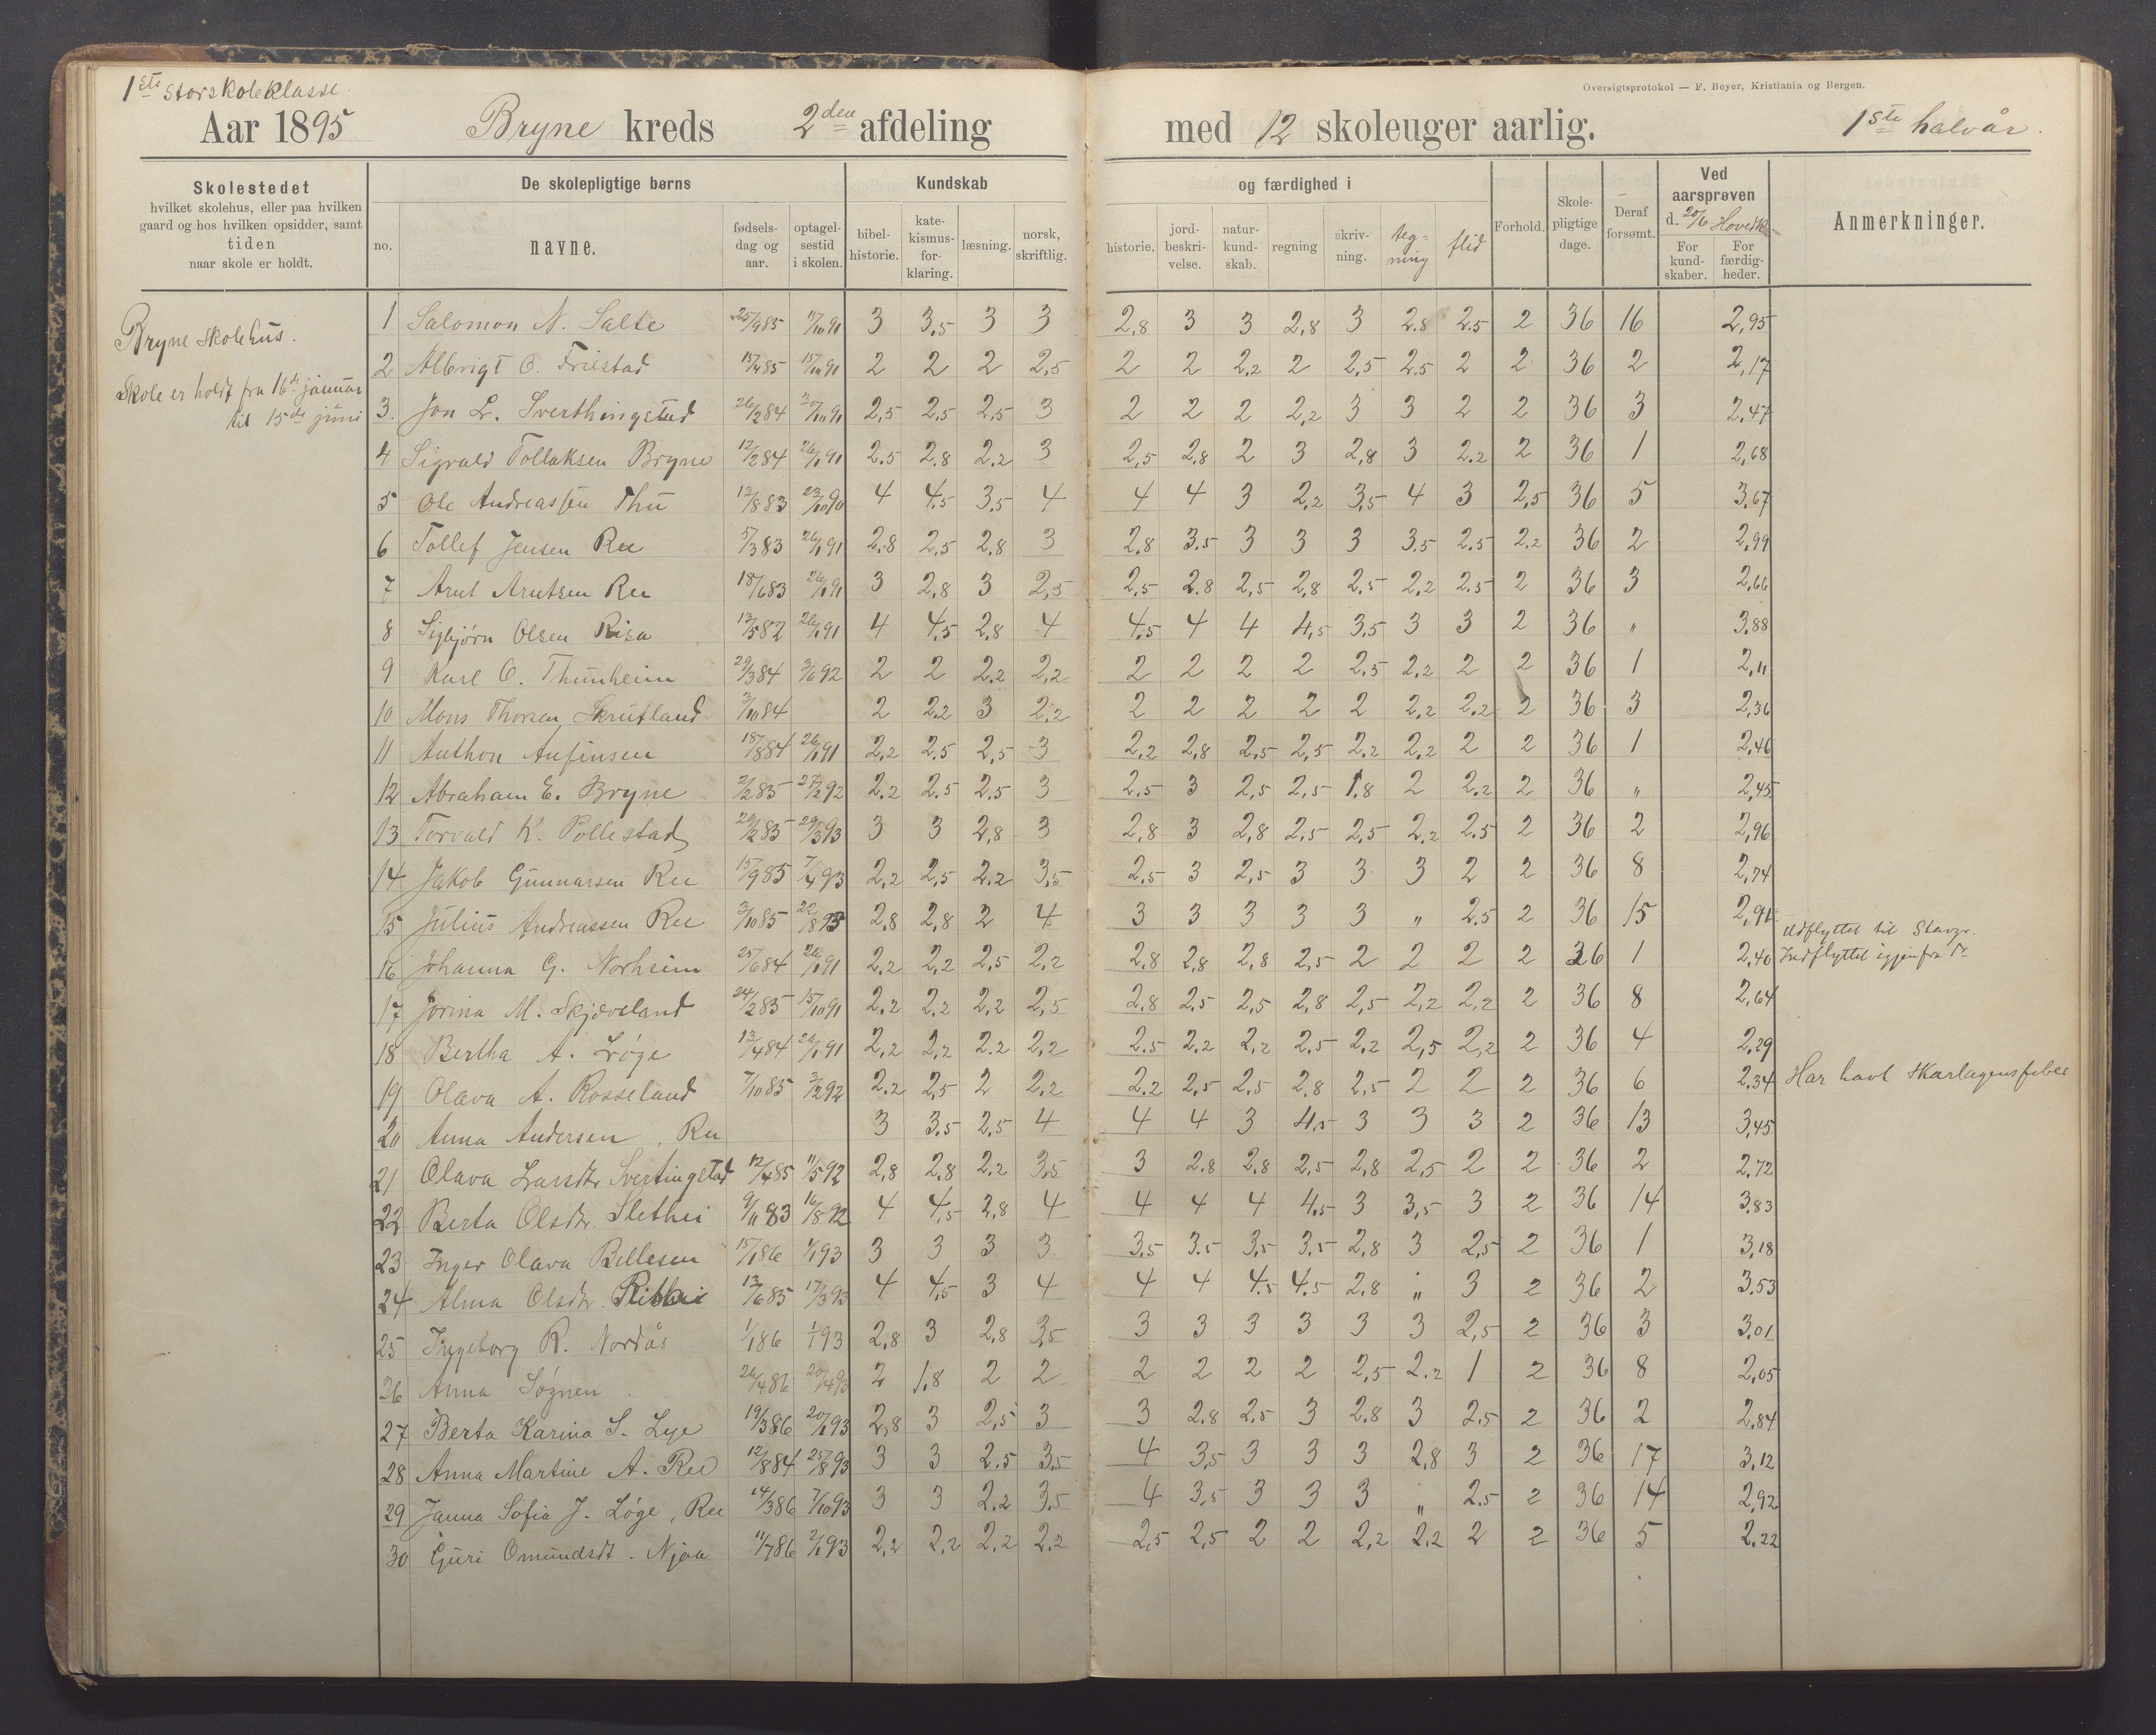 1ste storskoleklasse.
Oversigtsprotokol — F. Beyer, Kristiania og Bergen.
Aar 1895 Bryne kreds 2den afdeling med 12 skoleuger aarlig. 1ste halvår.
Skolestedet
hvilket skolehus, eller paa hvilken
gaard og hos hvilken opsidder, samt
tiden
naar skole er holdt.
De skolepligtige børns
no.
navne.
fødsels-
dag og
aar.
optagel-
sestid
i skolen.
Kundskab
bibel-
historie.
kate-
kismus-
for-
klaring.
læsning.
norsk,
skriftlig.
og færdighed i
historie.
jord-
beskri-
velse.
natur-
kund-
skab.
regning
skriv-
ning.
teg-
ning
flid
Forhold.
Skole-
pligtige
dage.
Deraf
forsømt.
Ved
aarsprøven
d. 20/6 Hovedk.
For
kund-
skaber.
For
færdig-
heder.
Anmerkninger.
Bryne skolehus.
Skole er holdt fra 16de januar
til 15de juni
1 Salomon N. Salte 25/9 85 17/10 91 3 3,5 3 3 2,8 3 3 2,8 3 2,8 2,5 2 36 16 2,95
2 Albrigt O. Friestad 15/4 85 15/10 91 2 2 2 2,5 2 2 2,2 2 2,5 2,5 2 2 36 2 2,17
3. Jon L. Sverthingstad 26/2 84 20/10 91 2,5 2,5 2,5 3 2 2 2 2,2 3 3 2 2 36 3 2,47
4 Sigvald Tollaksen Bryne 12/2 84 26/1 91 2,5 2,8 2,2 3 2,5 2,8 2 3 2,8 3 2,2 2 36 1 2,68
5 Ole Andreassen Thu 13/8 83 23/10 90 4 4,5 3,5 4 4 4 3 2,2 3,5 4 3 2,5 36 5 3,67
6 Tollef Jensen Ree 5/3 83 26/1 91 2,8 2,5 2,8 3 2,8 3,5 3 3 3 3,5 2,5 2,2 36 2 2,99
7 Arnt Arntsen Ree 18/6 83 26/1 91 3 2,8 3 2,5 2,5 2,8 2,5 2,8 2,5 2,2 2,5 2 36 3 2,66
8 Sigbjørn Olsen Risa 13/5 82 26/1 91 4 4,5 2,8 4 4,5 4 4 4,5 3,5 3 3 2 36 " 3,88
9 Karl O. Thunheim 29/3 84 3/6 92 2 2 2,2 2,2 2 2 2 2 2,5 2,2 2 2 36 1 2,11
10 Mons Thorsen Skrutland 3/10 84 2 2,2 3 2,2 2 2 2 2 2 2,2 2,2 2 36 3 2,36
11 Anthon Anfinsen 18/8 84 26/1 91 2,2 2,5 2,5 3 2,2 2,8 2,5 2,5 2,2 2,2 2 2 36 1 2,46
12 Abraham E. Bryne 2/2 85 27/2 92 2,2 2,5 2,5 3 2,5 3 2,5 2,5 1,8 2 2,2 2 36 " 2,45
13 Torvald K. Pollestad 20/2 85 29/3 93 3 3 2,8 3 2,8 3 2,8 2,5 2,5 2,2 2,5 2 36 2 2,96
14 Jakob Gunnarsen Ree 15/9 85 7/4 93 2,2 2,5 2,2 3,5 2,5 3 2,5 3 3 3 2 2 36 8 2,74
15 Julius Andreassen Ree 3/10 85 22/8 93 2,8 2,8 2 4 3 3 3 3 3 " 2,5 2 36 15 2,91 Udflyttet til Stavgr.
16 Johanna G. Norheim 25/6 84 26/1 91 2,2 2,2 2,5 2,2 2,8 2,8 2,8 2,5 2 2 2 2 36 1 2,40 Indflyttet igjen fra
17 Jorina M. Skjæveland 24/2 85 15/10 91 2,2 2,2 2,2 2,5 2,8 2,5 2,5 2,8 2,5 2,2 2,2 2 36 8 2,64
18 Bertha A. Løge 13/4 84 26/1 91 2,2 2,2 2,2 2,2 2,5 2,2 2,2 2,5 2,2 2,5 2,2 2 36 4 2,29
19 Olava A. Rosseland 7/10 85 3/2 92 2,2 2,5 2 2,2 2,2 2,5 2,5 2,8 2,5 2 2 2 36 6 2,34 Har havt Skarlagensfeber
20 Anna Andersen, Ree 3 3,5 2,5 4 4 4 3 4,5 3 3 3 2 36 13 3,45
21 Olava Larsdtr Svertingstad 12/4 85 11/5 92 2,8 2,8 2,2 3,5 3 2,8 2,8 2,5 2,8 2,5 2 2 36 2 2,72
22 Berta Olsdtr. Slethei 9/11 83 16/8 92 4 4,5 2,8 4 4 4 4 4,5 3 3,5 3 2 36 14 3,83
23 Inger Olava Bellesen 15/1 86 1/1 93 3 3 3 3 3,5 3,5 3,5 3,5 2,8 3 2,5 2 36 1 3,18
24 Alma Olsdtr. 13/6 85 17/3 93 4 4,5 3 4 4 4 4,5 4,5 2,8 " 3 2 36 2 3,53
25 Ingeborg R. Nordås 1/1 86 1/1 93 2,8 3 2,8 3,5 3 3 3 3 3 3 2,5 2 36 3 3,01
26 Anna Søgnen 26/4 86 20/4 93 2 1,8 2 2 2 2 2 2 2,5 2,2 1 2 36 8 2,05
27 Berta Karina S. Lye 19/3 86 20/1 93 2,8 3 2,5 3 3 2,8 2,5 3 2,8 3 2,5 2 36 2 2,84
28 Anna Martine A. Ree 12/8 84 25/8 93 3 3 2,5 3,5 4 3,5 3 3 3 2,8 3 2 36 17 3,12
29 Janna Sofia J. Løge, Ree 14/3 86 7/10 93 3 3 2,2 3,5 4 3,5 3 3 3 " 2,5 2 36 14 2,92
30 Guri Omundsdt. Njaa 11/7 86 2/1 93 2,2 2,2 2,2 2,2 2,5 2,5 2 2 2,2 2,2 2 2 36 5 2,22